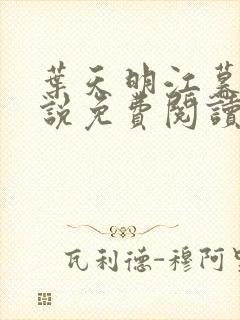 葉天明江慕
說免費閱讀
瓦利德-穆阿里